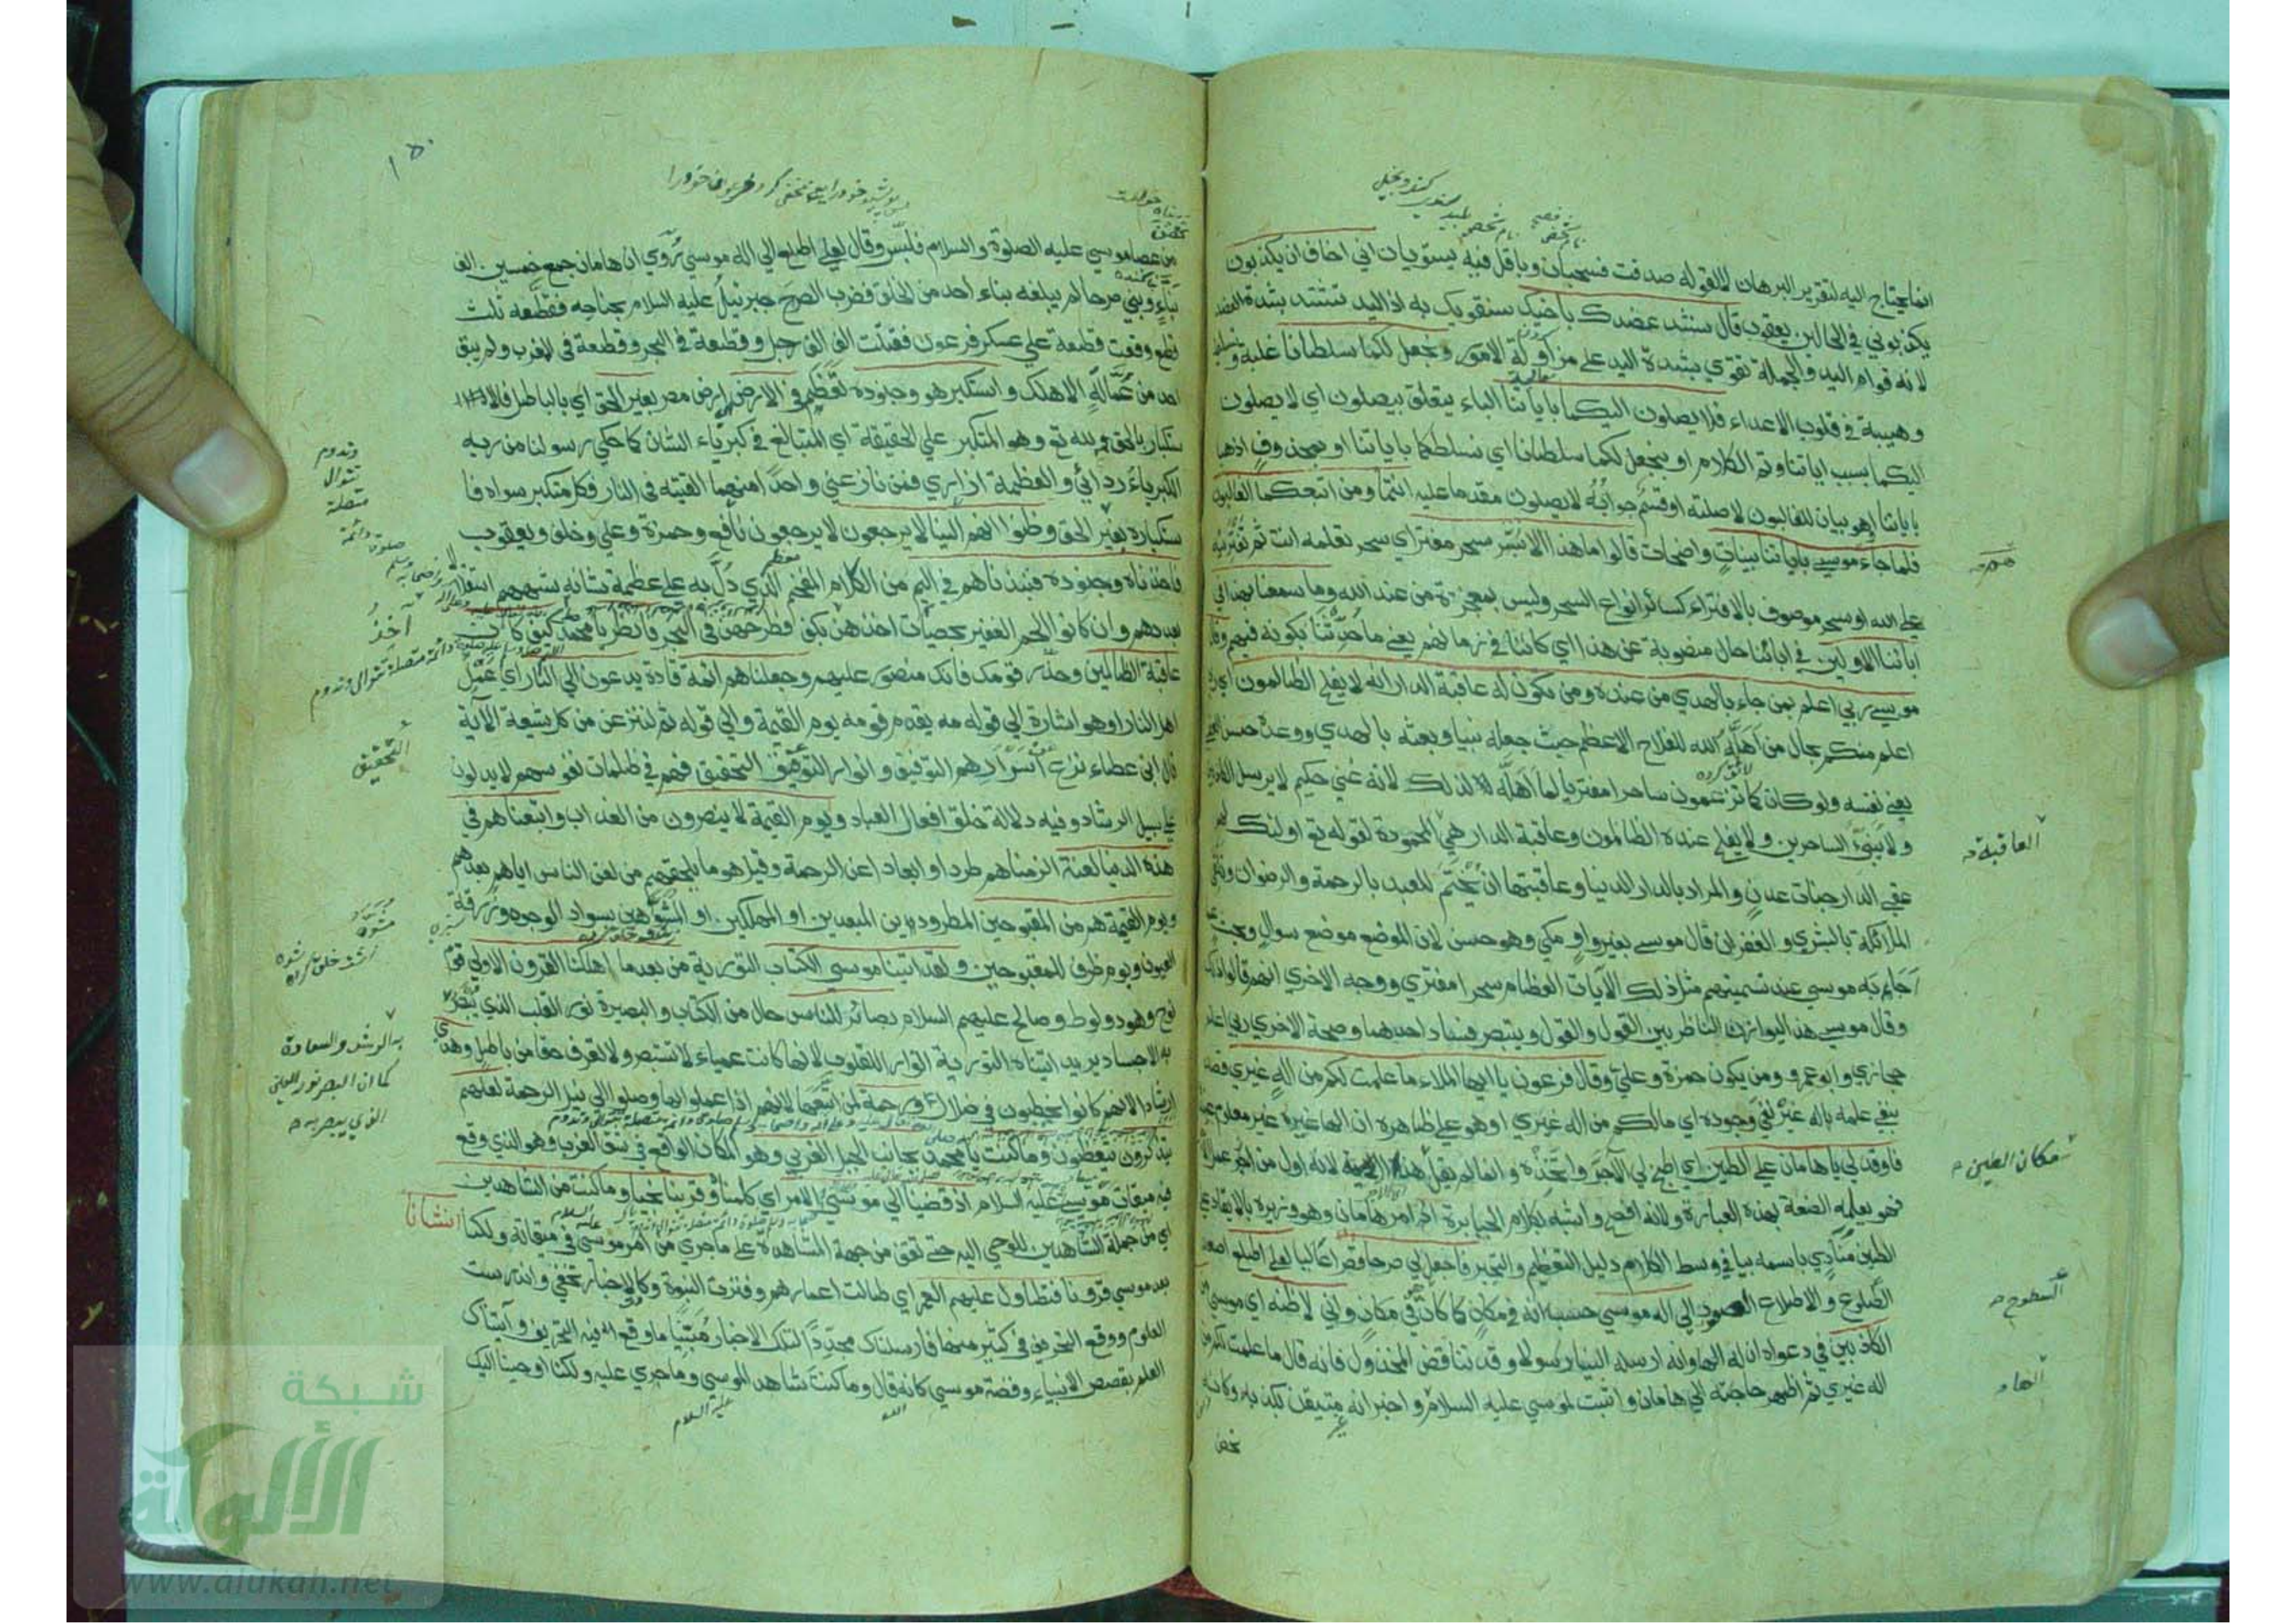 انما يحتاج اليه لتقرير البرهان لا لقوله صدقت فسحبان وباقل فيه يستويان اني اخاف ان يكذبون
يكذبوني في الحالين يعقوب قال سنشد عضدك باخيك سنقويك به اذ اليد تشتد بشدة العضد
لانه قوام اليد والجملة تقوي بشدة اليد علي مزاولة الامور ونجعل لكما سلطانا غلبة وتسلطا
وهيبة في قلوب الاعداء فلا يصلون اليكما باياتنا الباء يتعلق بيصلون اي لا يصلون
اليكما بسبب اياتنا وتم الكلام او بنجعل لكما سلطانا اي نسلطكما باياتنا او بمحذوف اي اذهبا
باياتنا او هو بيان للغالبون لا صلته او قسم جوابه لا يصلون مقدما عليه انتما ومن اتبعكما الغالبون
فلما جاء موسي باياتنا بينات واضحات قالوا ما هذا الا سحر مفتراي سحر تعلمه انت ثم تفتريه
علي الله او سحر موصوف بالافتراء كسائر انواع السحر وليس بمعجزة من عند الله وما سمعنا بهذا في
ابائنا الاولين في ابائنا حال منصوبة عن هذا اي كائنا في زمانهم يعني ما حدثنا بكونه فيهم وقال
موسي ربي اعلم بمن جاء بالهدي من عنده ومن تكون له عاقبة الدار انه لا يفلح الظالمون اي ربي
اعلم منكم بحال من اهله الله للفلاح الاعظم حيث جعله نبيا وبعثه بالهدي ووعده حسن العقبي
يعني نفسه ولو كان كما تزعمون ساحرا مفتريا لما اهله لذلك لانه غني حكيم لا يرسل الكاذبين
ولا ينبئ الساحرين ولا يفلح عنده الظالمون وعاقبة الدار هي المحمودة لقوله تع اولئك لهم
عقبي الدار جنات عدن والمراد بالدار الدنيا وعاقبتها ان تختم للعبد بالرحمة والرضوان وتلقي
الملائكة بالبشري والغفران قال موسي بغير واو مكي وهو حسن لان الموضع موضع سوال وبحث عما
اجابهم به موسي عند تسميتهم مثل ذلك الآيات العظام سحرا مفتري ووجه الاخري انهم قالوا ذلك
وقال موسي هذا ليوازن الناظر بين القول والقول ويتبصر فساد احدهما وصحة الاخري ربي اعلم
حجازي وابو عمرو ومن يكون حمزة وعلي وقال فرعون يا ايها الملاء ما علمت لكم من اله غيري قصد
بنفي علمه باله غيره نفي وجوده اي مالكم من اله غيري او هو علي ظاهره ان الها غيره غير معلوم عنده
فاوقد لي يا هامان علي الطين اي اطبخ لي الآجر واتخذه وانما لم يقل لانه اول من عمل الآجر
فهو يعلمه الصنعة بهذه العبارة ولانه افصح واشبه بكلام الجبابرة اذ امر هامان وهو وزيره بالايقاد علي
الطين منادي باسمه بيا في وسط الكلام دليل التعظم والتجبر فاجعل لي صرحا قصرا عاليا لعلي اطلع اصعد
الطلوع والاطلاع الصعود الي اله موسي حسب انه في مكان كما كان هو في مكان واني لاظنه اي موسي من
الكاذبين في دعواه ان له الها وانه ارسله الينا رسولا وقد تناقض المخذول فانه قال ما علمت لكم من
اله غيري ثم اظهر حاجته الي هامان واثبت لموسي عليه السلام واخبر انه غير متيقن بكذبه وكانه
تحصن
العاقبة
مكان الطين
السطوح
الها
من عصا موسي عليه الصلوة والسلام فلبس وقال لعلي اطلع الي اله موسي روي ان هامان جمع خمسين الف
بناء وبني صرحا لم يبلغه بناء احد من الخلق فضرب الصرح جبرئيل عليه السلام بجناحه فقطعه ثلث
قطع وقعت قطعة علي عسكر فرعون فقتلت الف الف رجل وقطعة في البحر وقطعة في المغرب ولم يبق
احد من عماله الا هلك واستكبر هو وجنوده تعظم في الارض ارض مصر بغير الحق اي بالباطل فالا
ستكبار بالحق لله تع وهو المتكبر علي الحقيقة اي المتبالغ في كبرياء الشان كما حكي رسولنا من ربه
الكبرياء ردائي والعظمة ازاري فمن نازعني واحدا منهما القيته في النار فكل متكبر سواه فا
ستكباره بغير الحق وظنوا انهم الينا لا يرجعون لا يرجعون نافع وحمزة وعلي وخلف ويعقوب
فاخذناه وجنوده فنبذناهم في اليم من الكلام المفخم الذي دل به علي عظمة شانه شبههم استقلالا
بعددهم وان كانوا الجم الغفير بحصيات اخذهن بكفه فطرحهن في البحر فانظر يا محمد كيف كانت
عاقبة الظالمين وحذر قومك فانك منصور عليهم وجعلناهم ائمة قادة يدعون الي النار اي عمل
اهل النار او هو اشارة الي قوله يقدم قومه يوم القيمة والي قوله ثم لننزعن من كل شيعة الآية
قال ابن عطاء نزع اسرارهم التوفيق وانوار التحقيق فهم في ظلمات نفوسهم لا يدلون
علي سبيل الرشاد وفيه دلالة خلق افعال العباد ويوم القيمة لا ينصرون من العذاب واتبعناهم في
هذه الدنيا لعنة الزمناهم طردا وابعادا عن الرحمة وقيل هو ما يلحقهم من لعن الناس اياهم بعدهم
ويوم القيمة هم من المقبوحين المطرودين المبعدين او المهلكين او المشوهين بسواد الوجوه وزرقة
العيون ويوم ظرف للمقبوحين ولقد اتينا موسي الكتاب التورية من بعدما اهلكنا القرون الاولي قوم
نوح وهود ولوط وصالح عليهم السلام بصائر للناس حال من الكتاب والبصيرة نور القلب الذي يبصر
به الاجساد يريد اتيناه التورية انوارا للقلوب لانها كانت عمياء لا تستبصر ولا تعرف حقا من باطل وهدي
ارشادا لانهم كانوا يخبطون في ضلال ورحمة لمن اتبعها لانهم اذا عملوا بها وصلوا الي نيل الرحمة لعلهم
يتذكرون يتعظون وما كنت يا محمد بجانب الجبل الغربي وهو المكان الواقع في شق الغرب وهو الذي وقع
فيه ميقات موسي عليه السلام اذ قضينا الي موسي الامر اي كلمناه وقربناه نجيا وما كنت من الشاهدين
اي من جملة الشاهدين للوحي اليه حتي تقف من جهة المشاهدة علي ما جري من امر موسي في ميقاته ولكنا انشانا
بعد موسي قرونا فتطاول عليهم العمر اي طالت اعمارهم وفترت النبوة وكادت الاخبار تخفي واندرست
العلوم ووقع التحريف في كثير منها فارسلناك مجددا لتلك الاخبار مبينا ما وقع فيه التحريف وآتيناك
العلم بقصص الانبياء وقصة موسي كانه قال وما كنت شاهدا لموسي وما جري عليه ولكنا اوحينا اليك
عليه السلام
وتدوم
تتوالي
متصلة
دائمة
آخذ
التحقيق
به الرشد والسعادة
كما ان البصر نور العين
الذي يبصر به
شبكة
الألوكة
www.alukah.net